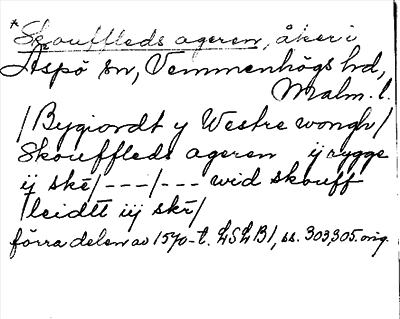 *Skouffleds ageren, åker i
Aspö sn, Vemmenhögs hd,
Malm. l.
/Bygiordt y Westre wongh/
Skouffleds ageren ij rygge
ij skē/---/--- wid skouff
leidtt iij skē/
förra delen av 1570-t. LSLB1, ss. 303,305. orig.